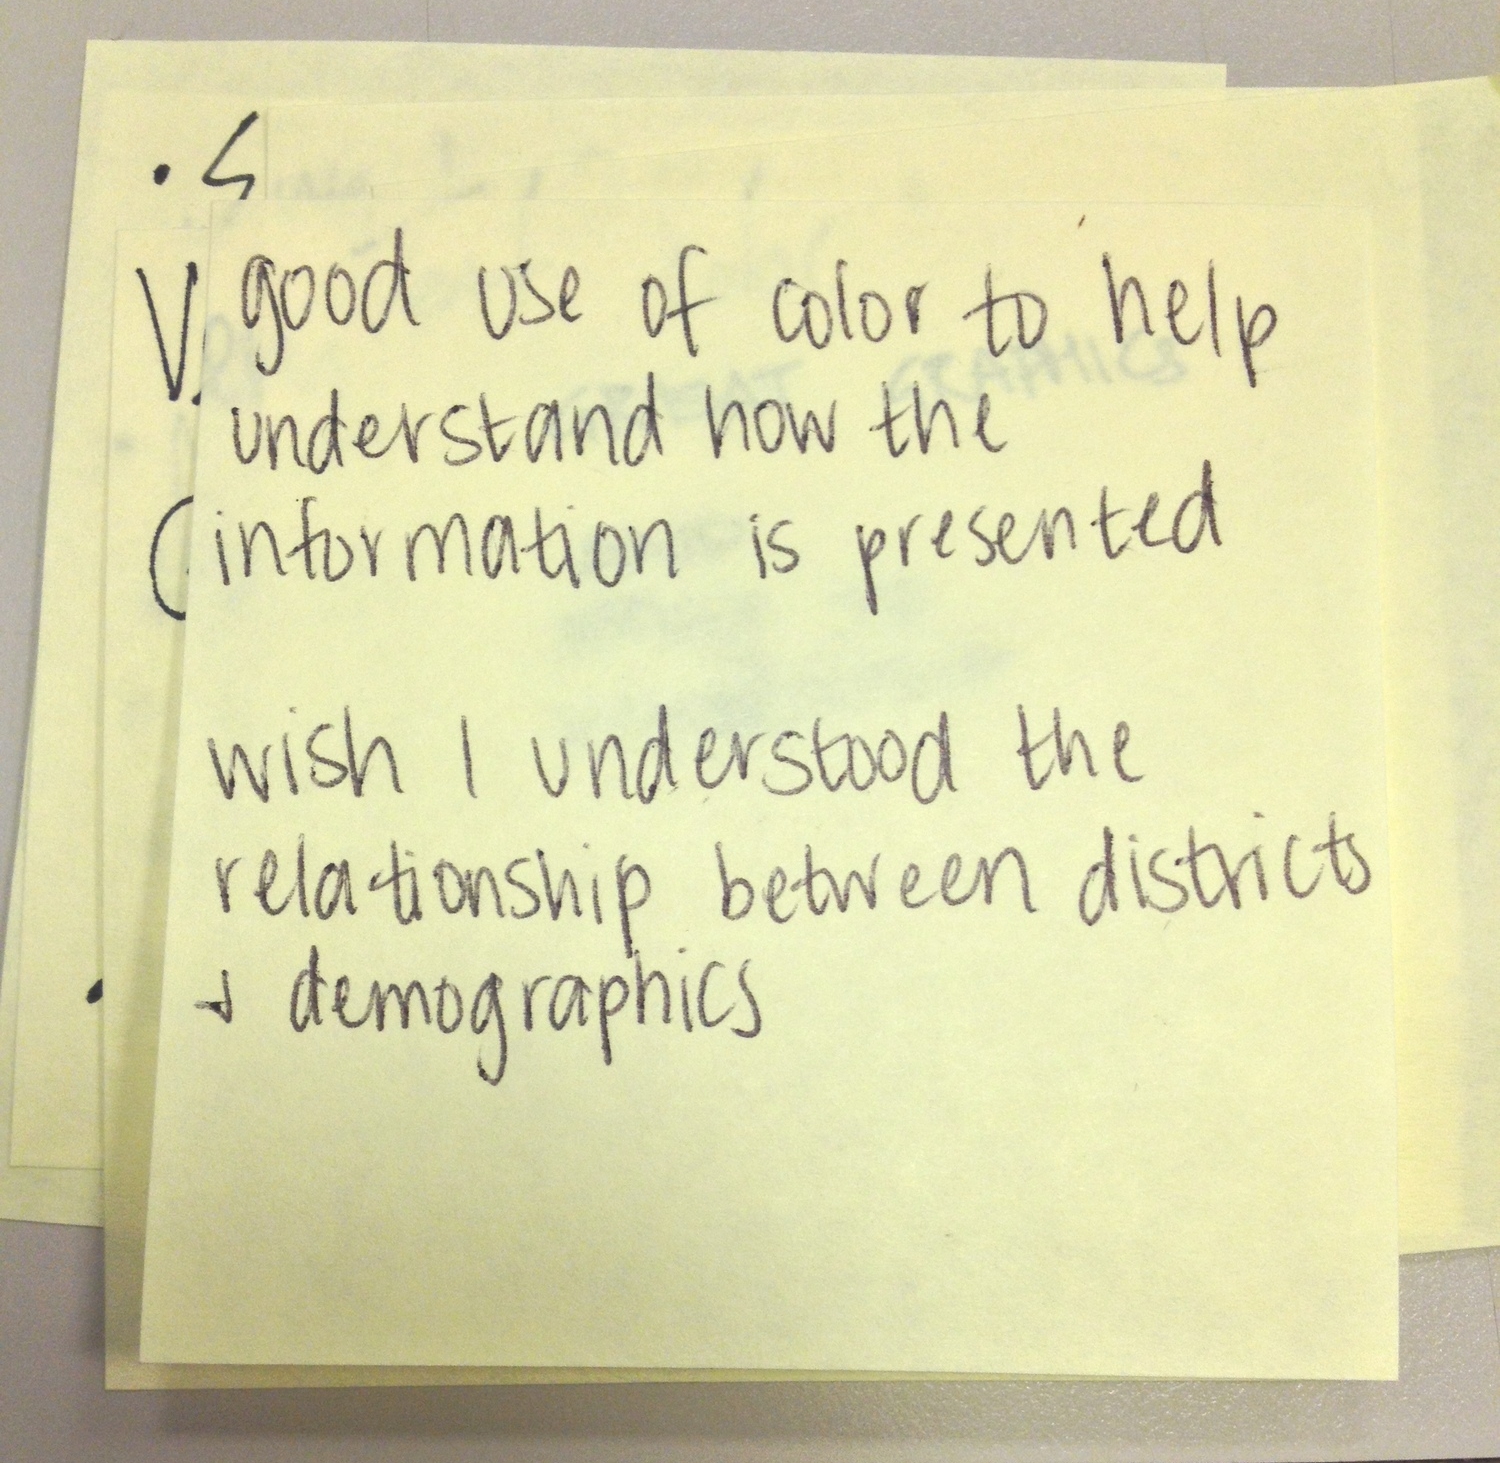 good use of color to help
understand how the
information is presented
wish I understood the
relationship between districts
+ demographics